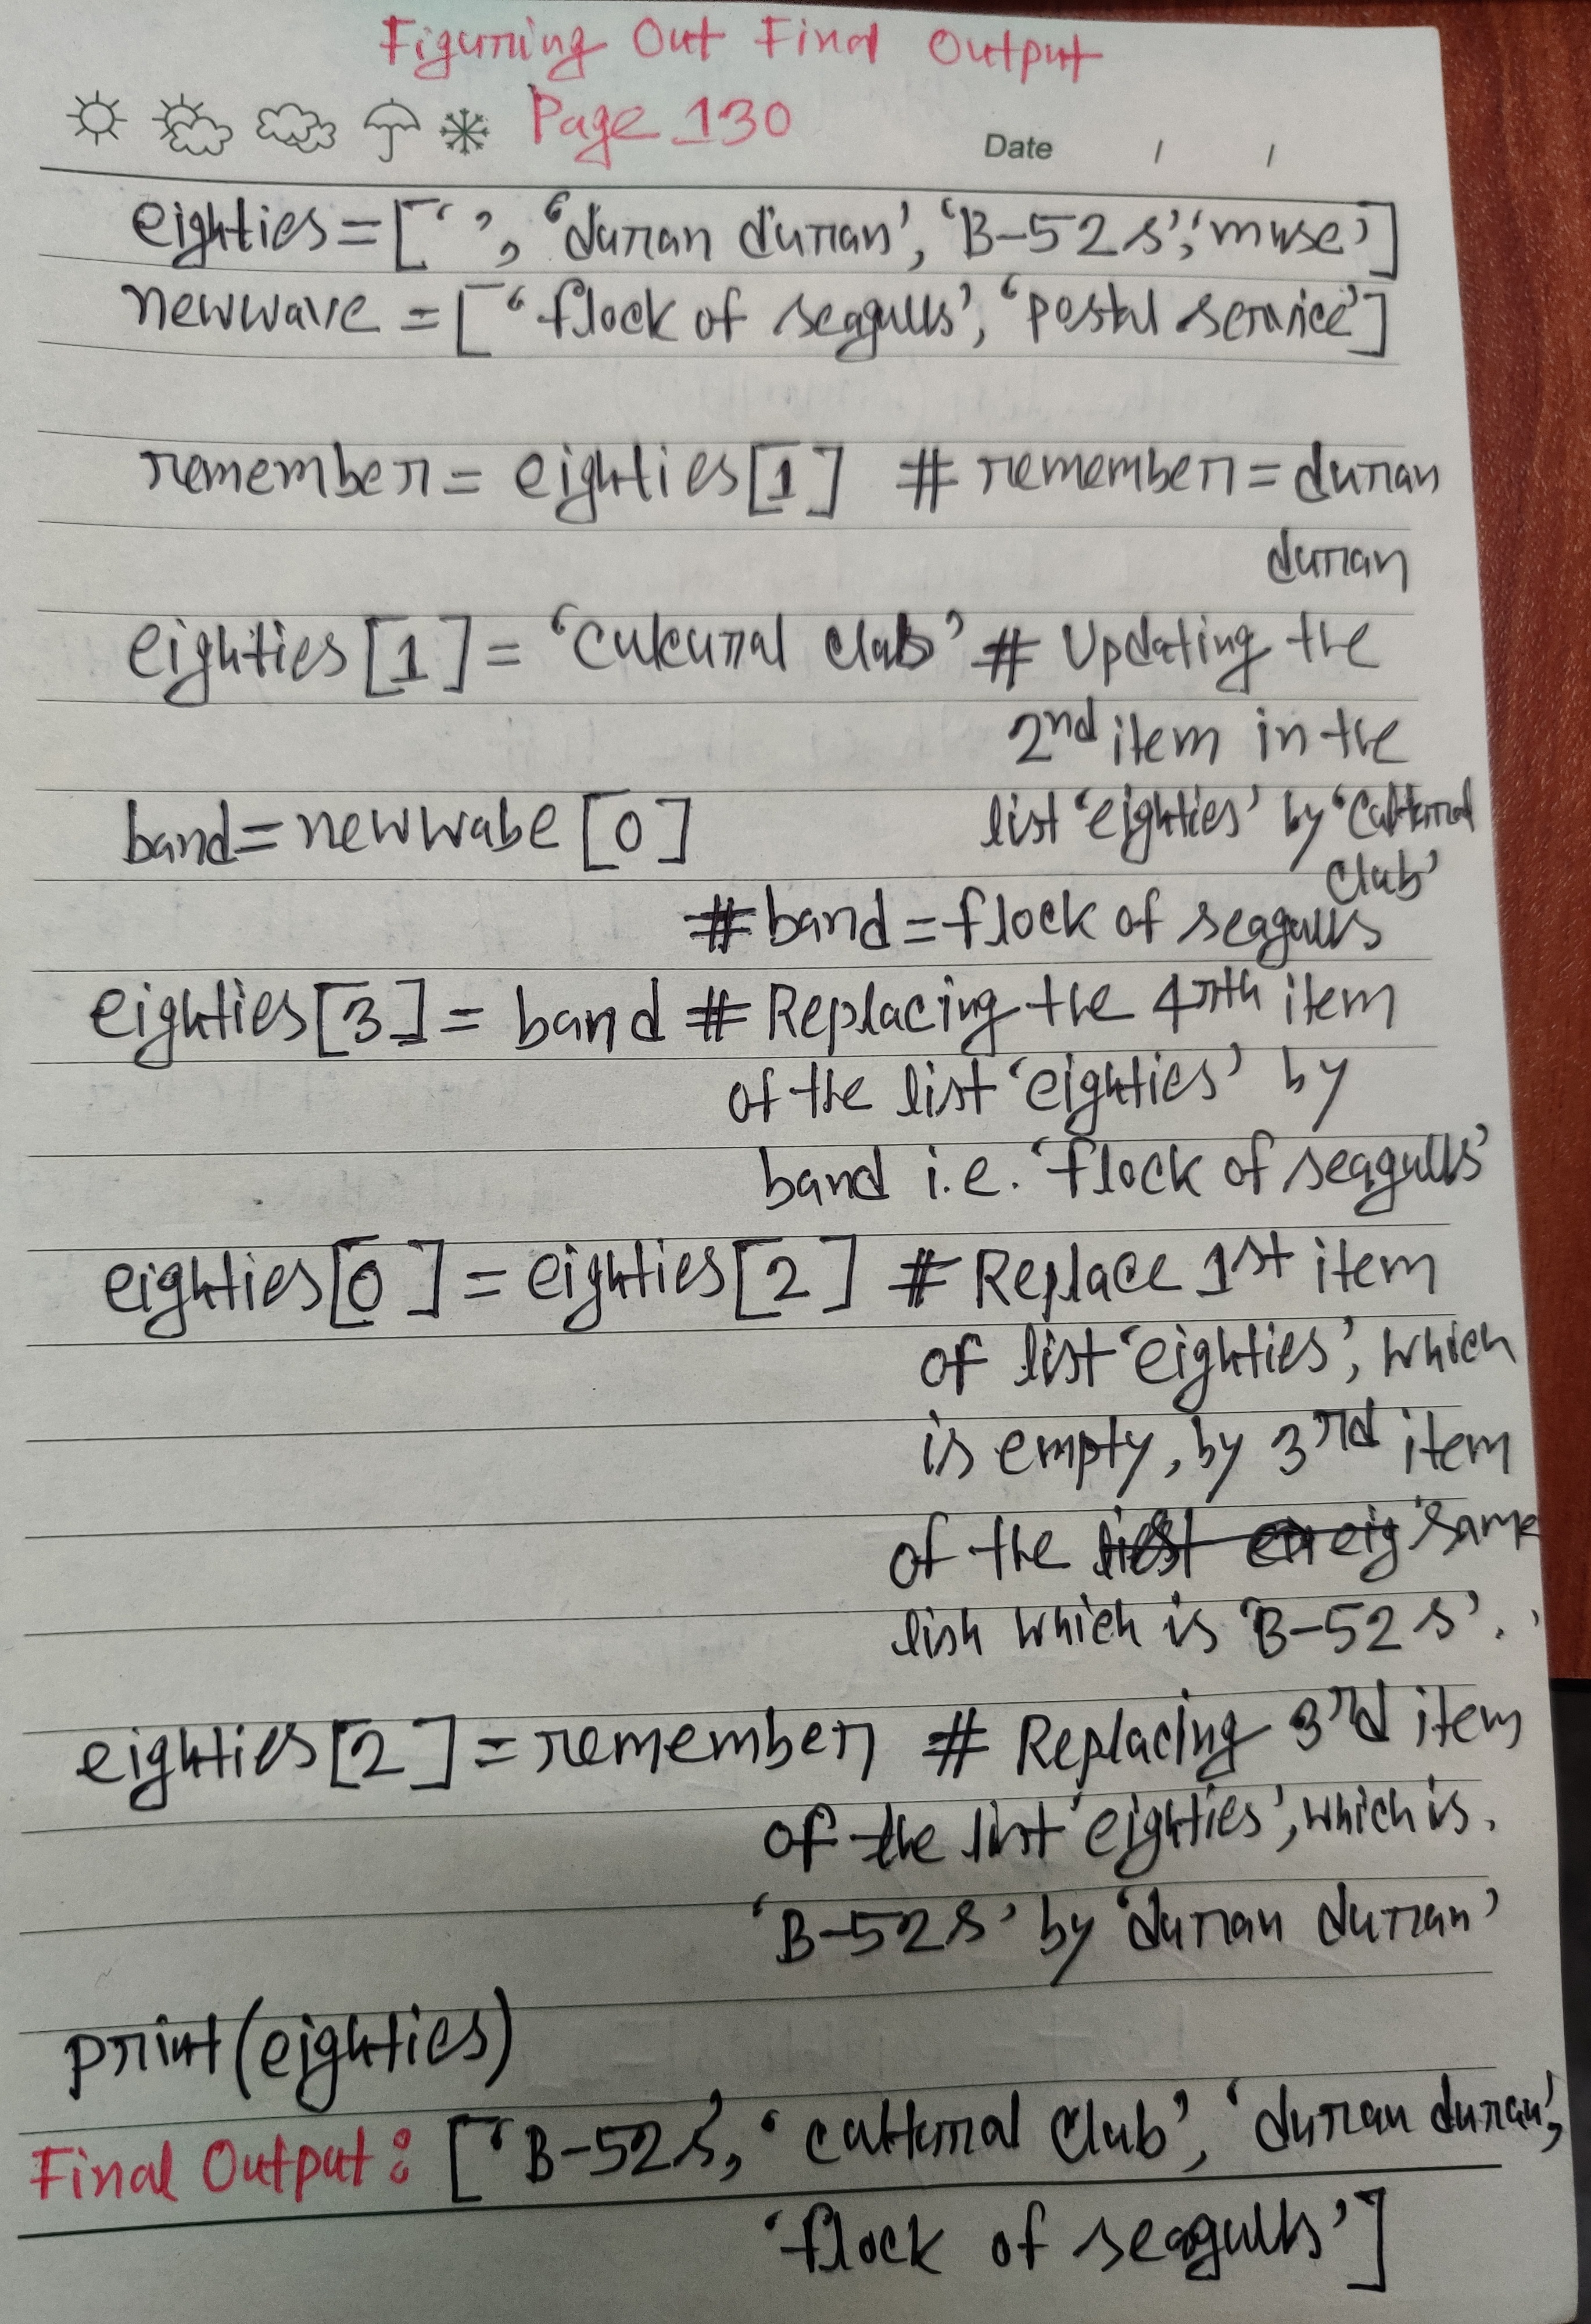 Figuring Out Final Output
Page 130
Date / /
eighties=[‘ ’, ‘duran duran’, ‘B-52s’, ‘muse’]
newwave = [‘flock of seagulls’, ‘postal service’]
remember = eighties[1] # remember = duran
duran
eighties[1] = ‘Cultural Club’ # Updating the
2nd item in the
list ‘eighties’ by ‘Cultural
Club’
band = newwabe[0]
# band = flock of seagulls
eighties[3] = band # Replacing the 4rth item
of the list ‘eighties’ by
band i.e. ‘flock of seagulls’
eighties[0] = eighties[2] # Replace 1st item
of list ‘eighties’, which
is empty, by 3rd item
of the same
list which is ‘B-52s’.
eighties[2] = remember # Replacing 3rd item
of the list ‘eighties’, which is.
‘B-52s’ by ‘duran duran’
print(eighties)
Final Output: [‘B-52s’, ‘Cultural Club’, ‘duran duran’,
‘flock of seagulls’]